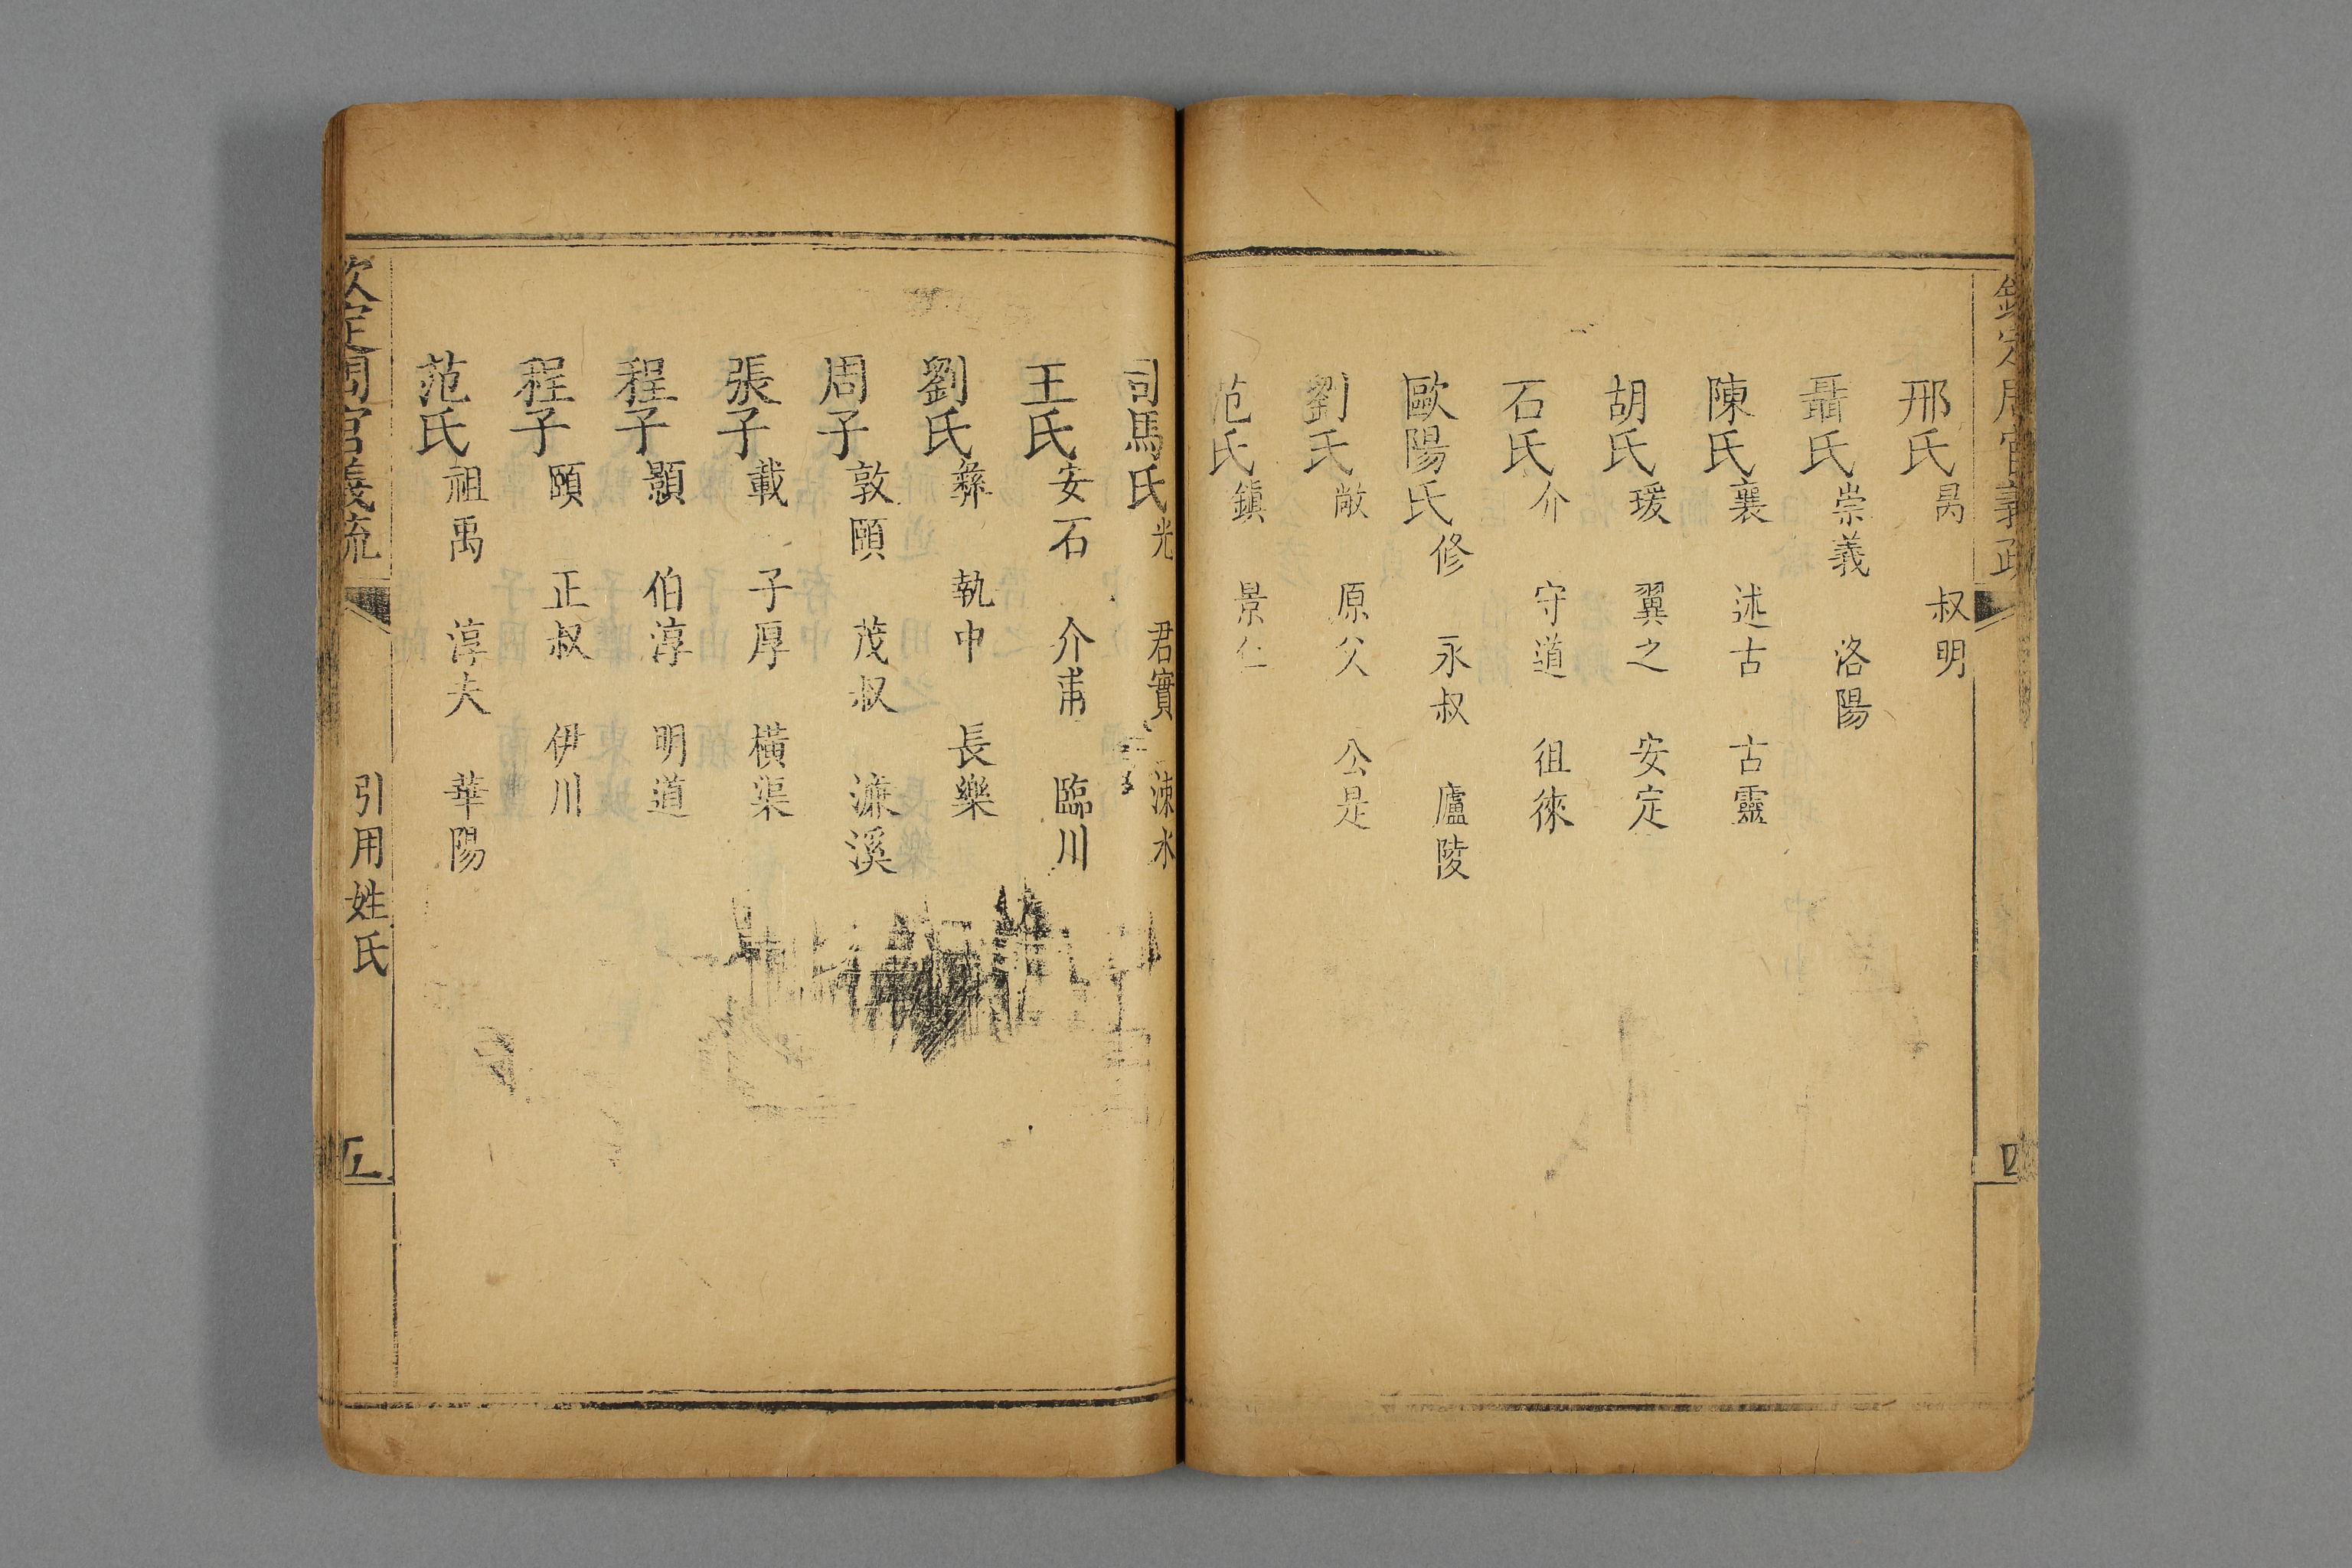 欽定周官義疏 四
邢氏 昺 叔明
聶氏 崇義 洛陽
陳氏 襄 述古 古靈
胡氏 瑗 翼之 安定
石氏 介 守道 徂徠
歐陽氏 修 永叔 廬陵
劉氏 敞 原父 公是
范氏 鎮 景仁
司馬氏 光 君實 涑水
王氏 安石 介甫 臨川
劉氏 彝 執中 長樂
周子 敦頤 茂叔 濂溪
張子 載 子厚 橫渠
程子 顥 伯淳 明道
程子 頤 正叔 伊川
范氏 祖禹 淳夫 華陽
欽定周官義疏 引用姓氏 五